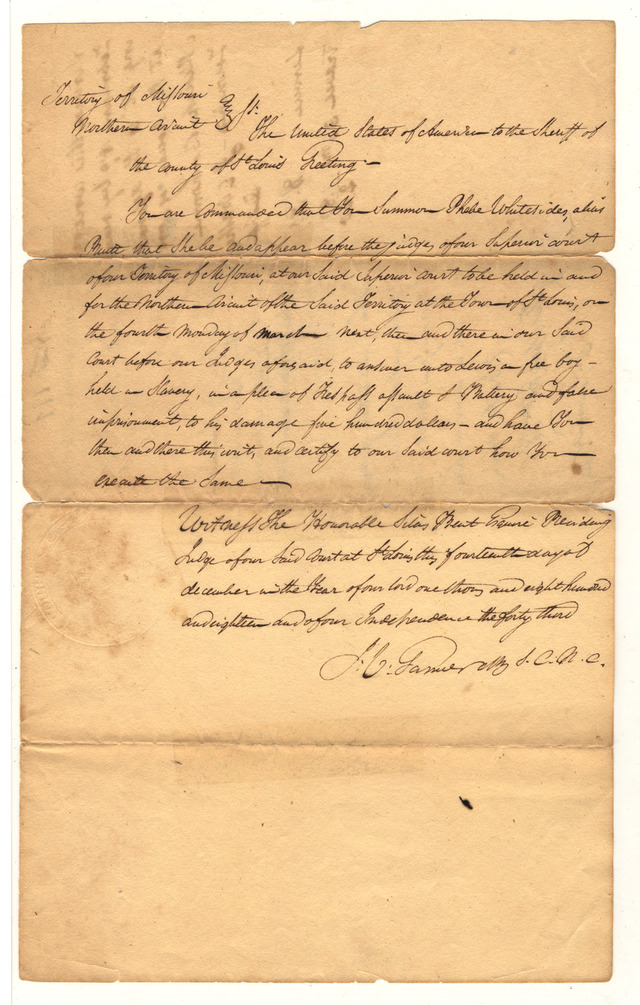 Territory of Missouri
Northern Circuit } Ss:
The United States of America to the Sheriff of
the County of St. Louis Greeting—
You are Commanded that You Summon Phebe Whitesides, alias
that She be and appear before the Judges of our Superior Court
of our Territory of Missouri, at our Said Superior Court to be held in and
for the Northern Circuit of the Said Territory at the Town of St. Louis, on
the fourth Monday of March next, then and there in our Said
Court before our Judges aforesaid, to answer unto Lewis, a free boy—
held in Slavery, in a plea of Trespass assault & Battery, and false
imprisonment, to his damage five hundred dollars — and have You
then and there this writ, and certify to our Said Court how You
execute the Same —
Witness The Honorable Silas Bent Esquire Presiding
Judge of our Said Court at St. Louis this fourteenth day of
december in the Year of our lord one thous and eight hundred
and eighteen and of our Independence the forty third
J. V. Garnier Clk S. C. N. C.